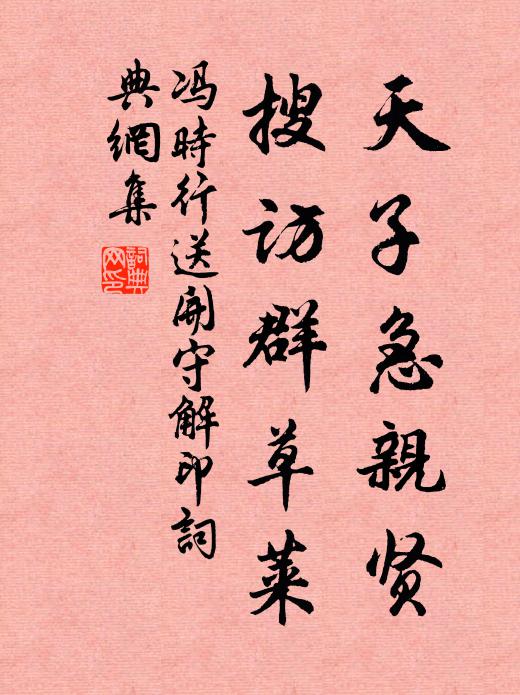 天子急親贤
搜访群草莱
冯時行送開守解印詞
典網集
詞典網印